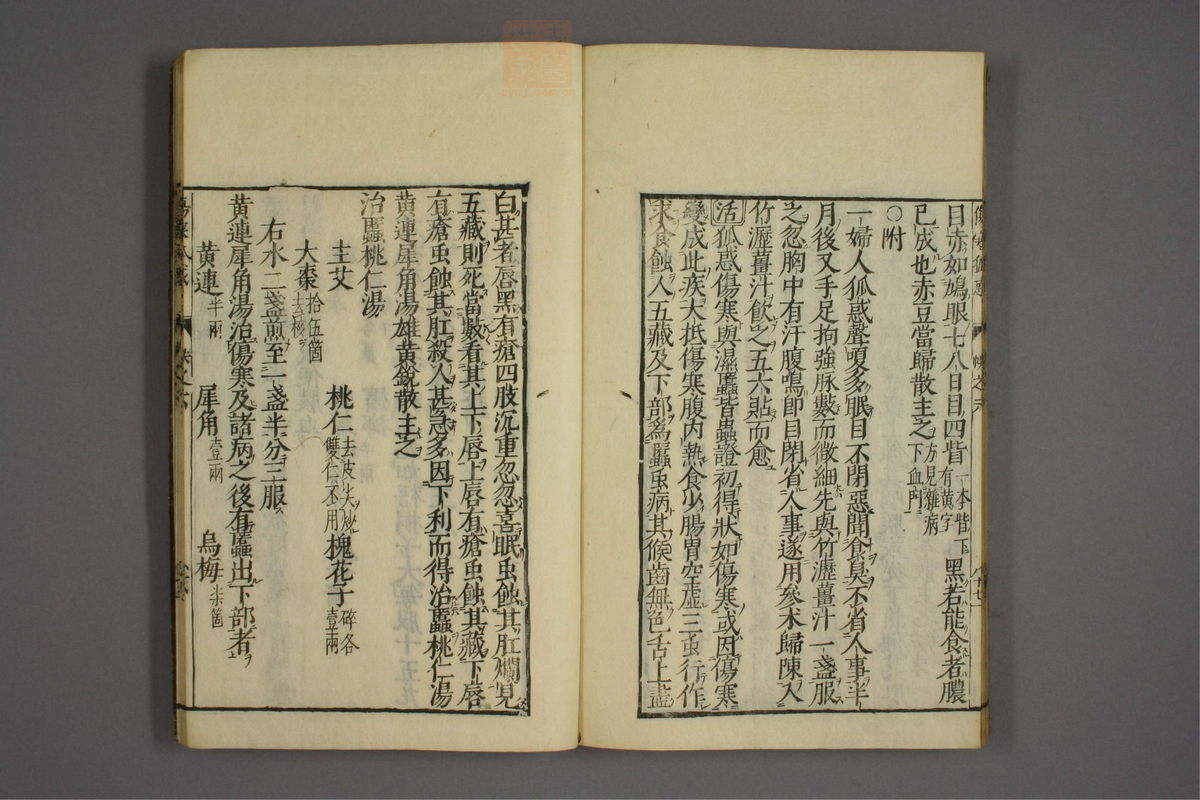 目赤如鳩眼七八日目四眥一本眥下有黃字黑若能食者膿
已成也赤豆當歸散主之方見雜病下血門
○附
一婦人狐惑聲嗄多眠目不閉惡聞食臭不省人事半
月後又手足拘強脉數而微細先與竹瀝薑汁一盞服
之忽胸中有汗腹鳴即目閉省人事遂用參朮歸陳入
竹瀝薑汁飲之五六貼而愈
活狐惑傷寒與濕䘌皆蟲證初得狀如傷寒或因傷寒
變成此疾大抵傷寒腹內熱食少腸胃空虛三虫行作
求食蝕人五藏及下部為䘌虫病其候齒無色舌上盡
白甚者唇黑有瘡四肢沉重忽忽喜眠虫蝕其肛爛見
五藏則死當數看其上下唇上唇有瘡虫蝕其藏下唇
有瘡虫蝕其肛殺人甚急多因下利而得治䘌桃仁湯
黃連犀角湯雄黃銳散主之
治䘌桃仁湯
桃仁去皮尖炒雙仁不用 槐花子碎各壹兩
艾
大棗拾伍箇去核
右水二盞煎至一盞半分三服
黃連犀角湯治傷寒及諸病之後有䘌出下部者
黃連半兩 犀角壹兩 烏梅柒箇